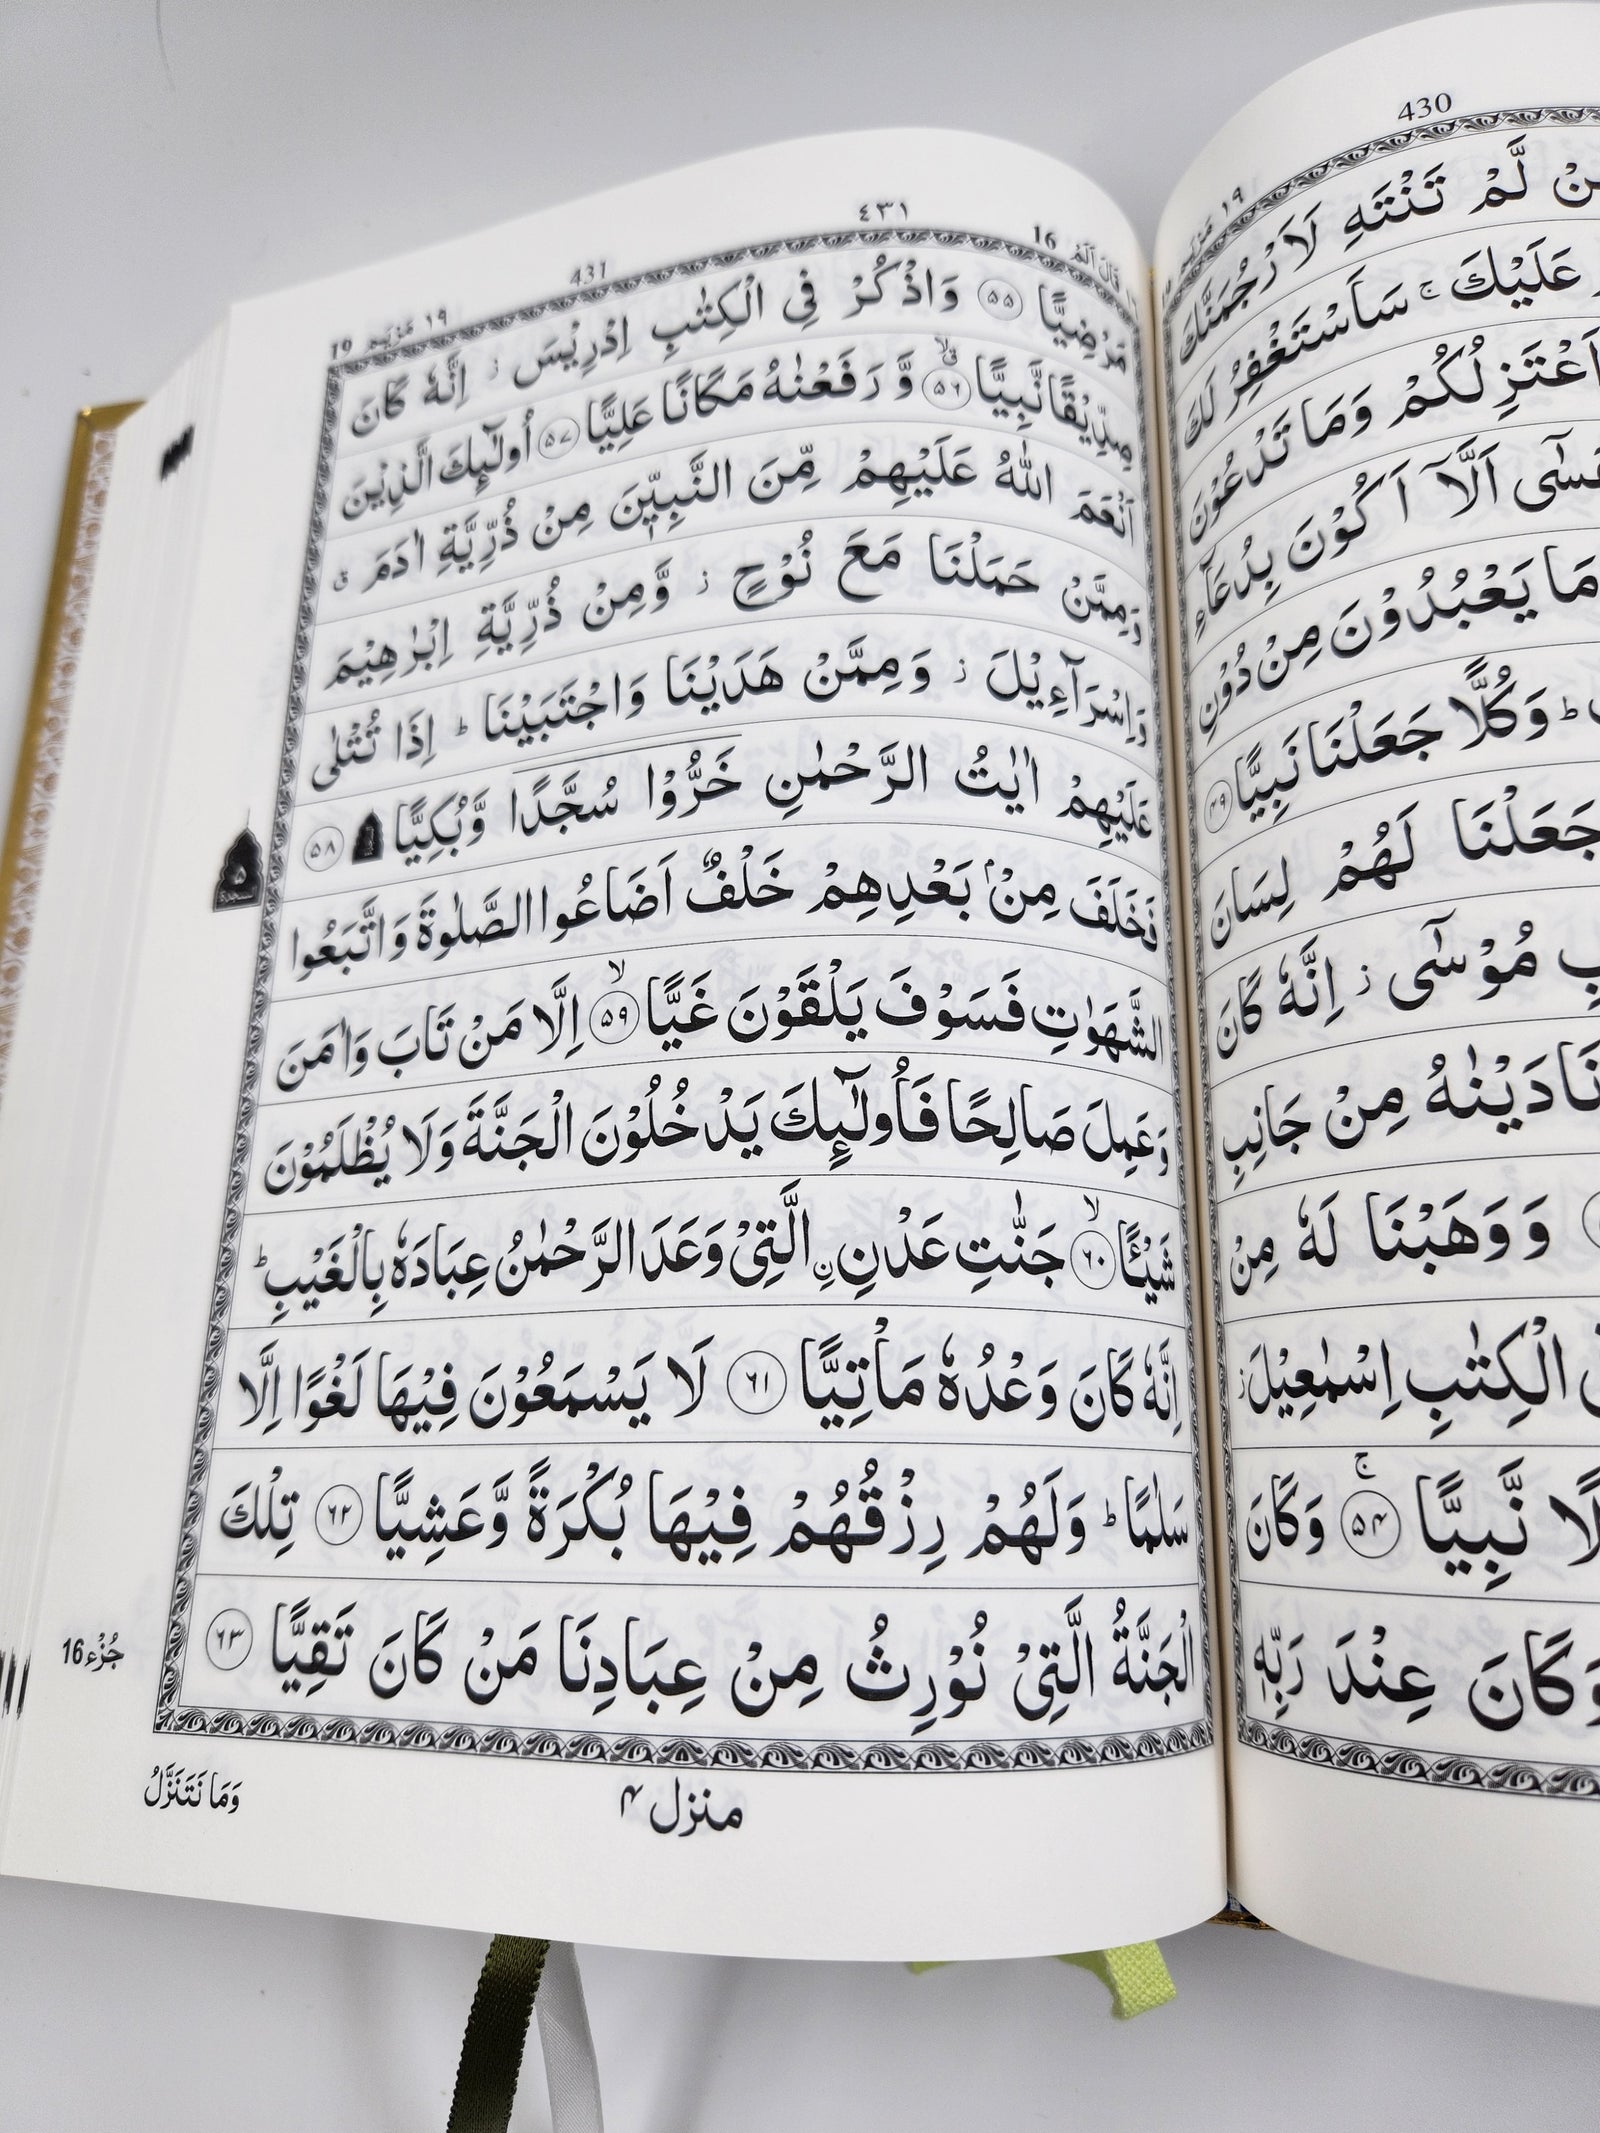 430
١٩ مَرْيَم
نْ لَّمْ تَنْتَهِ لَاَرْجُمَنَّكَ
عَلَيْكَ ۚ سَاَسْتَغْفِرُ لَكَ
اَعْتَزِلُكُمْ وَمَا تَدْعُوْنَ
عَسٰٓى اَلَّآ اَكُوْنَ بِدُعَآءِ
مَا يَعْبُدُوْنَ مِنْ دُوْنِ
ؕ وَكُلًّا جَعَلْنَا نَبِيًّا ۴۹
جَعَلْنَا لَهُمْ لِسَانَ
بِ مُوْسٰٓى ؗ اِنَّهٗ كَانَ
نَادَيْنٰهُ مِنْ جَانِبِ
وَوَهَبْنَا لَهٗ مِنْ
الْكِتٰبِ اِسْمٰعِيْلَ ؗ
لًا نَّبِيًّا ۵۴ ۚ وَكَانَ
وَكَانَ عِنْدَ رَبِّهٖ
٤٣١
قَالَ اَلَمْ 16
431
١٩ مَرْيَم 19
مَرْضِيًّا ۵۵ وَاذْكُرْ فِى الْكِتٰبِ اِدْرِيْسَ ؗ اِنَّهٗ كَانَ
صِدِّيْقًا نَّبِيًّا ۵۶ ۙق وَّرَفَعْنٰهُ مَكَانًا عَلِيًّا ۵۷ اُولٰٓئِكَ الَّذِيْنَ
اَنْعَمَ اللّٰهُ عَلَيْهِمْ مِّنَ النَّبِيّٖنَ مِنْ ذُرِّيَّةِ اٰدَمَ ق
وَمِمَّنْ حَمَلْنَا مَعَ نُوْحٍ ؗ وَّمِنْ ذُرِّيَّةِ اِبْرٰهِيْمَ
وَاِسْرَآءِيْلَ ؗ وَمِمَّنْ هَدَيْنَا وَاجْتَبَيْنَا ؕ اِذَا تُتْلٰى
عَلَيْهِمْ اٰيٰتُ الرَّحْمٰنِ خَرُّوْا سُجَّدًا وَّبُكِيًّا ۩ ۵۸
فَخَلَفَ مِنْۢ بَعْدِهِمْ خَلْفٌ اَضَاعُوا الصَّلٰوةَ وَاتَّبَعُوا
الشَّهَوٰتِ فَسَوْفَ يَلْقَوْنَ غَيًّا ۵۹ ۙ اِلَّا مَنْ تَابَ وَاٰمَنَ
وَعَمِلَ صَالِحًا فَاُولٰٓئِكَ يَدْخُلُوْنَ الْجَنَّةَ وَلَا يُظْلَمُوْنَ
شَيْـًٔا ۶۰ ۙ جَنّٰتِ عَدْنِ ۣالَّتِىْ وَعَدَ الرَّحْمٰنُ عِبَادَهٗ بِالْغَيْبِ ؕ
اِنَّهٗ كَانَ وَعْدُهٗ مَاْتِيًّا ۶۱ لَا يَسْمَعُوْنَ فِيْهَا لَغْوًا اِلَّا
سَلٰمًا ؕ وَلَهُمْ رِزْقُهُمْ فِيْهَا بُكْرَةً وَّعَشِيًّا ۶۲ تِلْكَ
الْجَنَّةُ الَّتِىْ نُوْرِثُ مِنْ عِبَادِنَا مَنْ كَانَ تَقِيًّا ۶۳
جُزْء 16
منزل ۴
وَمَا نَتَنَزَّلُ